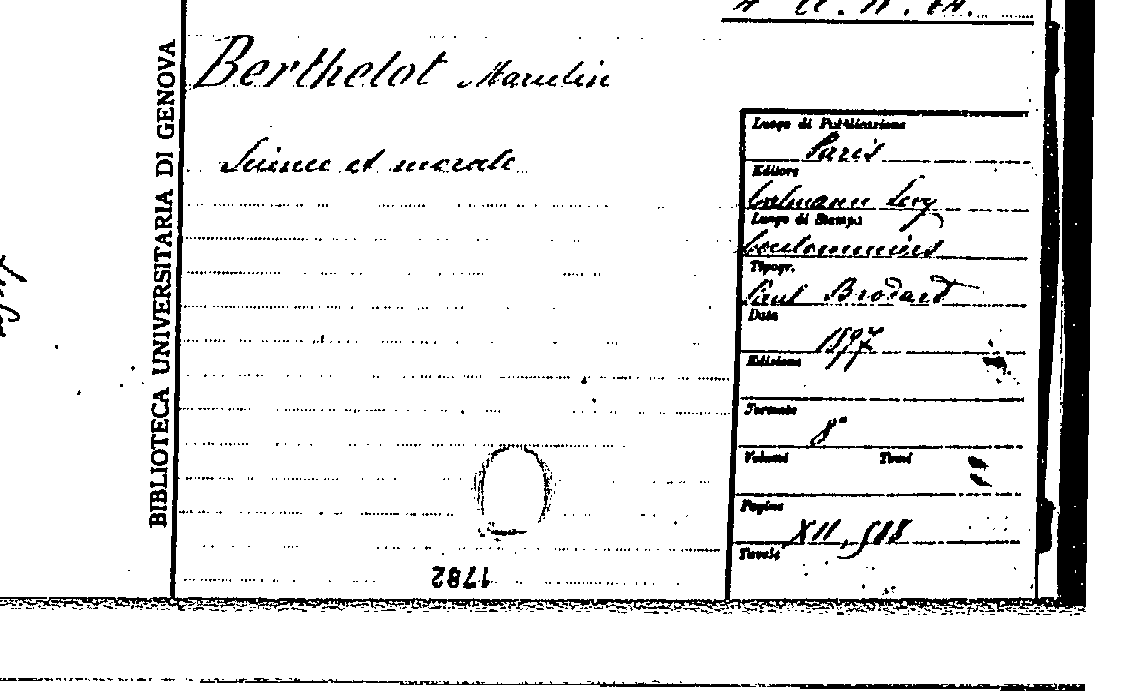 BIBLIOTECA UNIVERSITARIA DI GENOVA
Berthelot Marcelin
Science et morale
Luogo di Pubblicazione
Paris
Editore
Calmann Levy
Luogo di Stampa
Coulommiers
Tipogr.
Paul Brodard
Data
1897
Edizione
Formato
8°
Volumi Tomi
Pagine
XII, 518
Tavole
1782